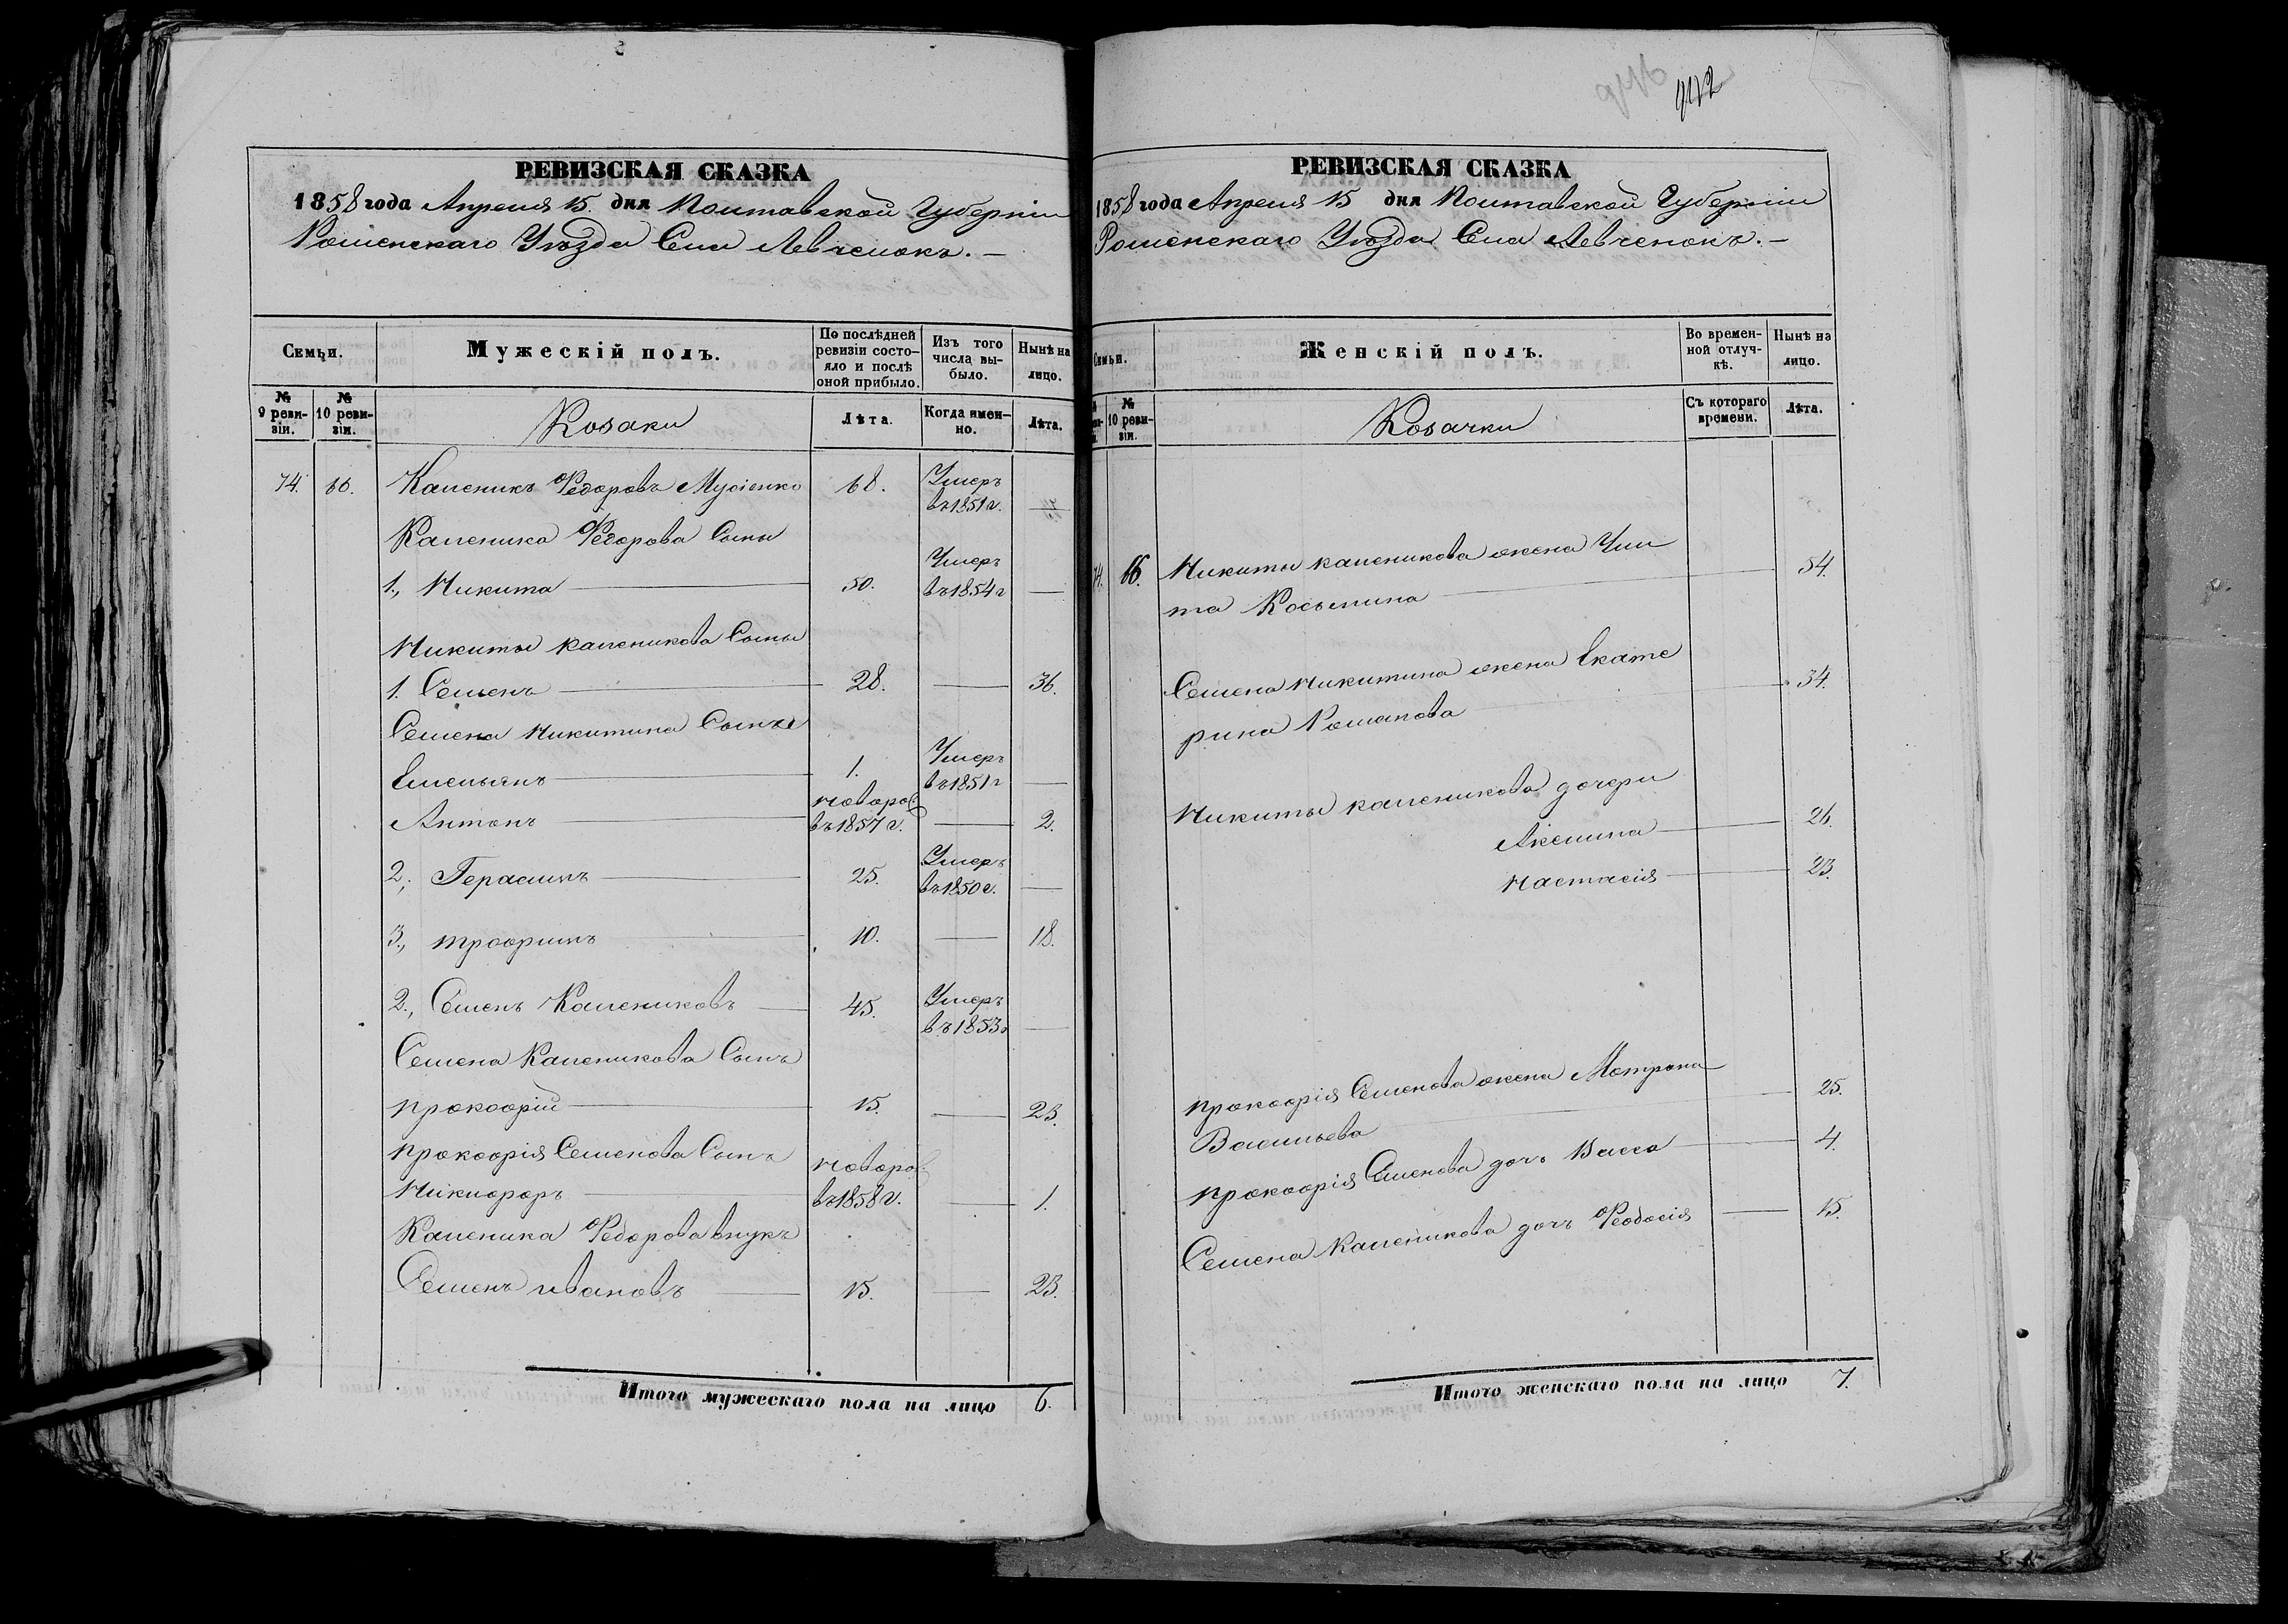 РЕВИЗСКАЯ СКАЗКА
1858 года Апреля 15. дня Полтавской Губерніи
Роменскаго Уѣзда Села Левченокъ. —
Семьи.
Мужескій полъ.
По послѣдней ревизіи состояло и послѣ оной прибыло.
Изъ того числа выбыло.
Нынѣ на лицо.
№ 9 ревизіи.
№ 10 ревизіи.
Козаки
Лѣта.
Когда именно.
Лѣта.
74. 66. Каленикъ Федоровъ Мусіенко 68. Умеръ въ 1851 г. —
Каленика Федорова Сыны
1., Никита — 50. Умеръ въ 1854 г —
Никиты Каленикова Сыны
1. Семенъ — 28. — 36.
Семена Никитина Сыны
Емельянъ — 1. Умеръ въ 1851 г —
Антонъ — новорож. въ 1857 г. — 2.
2., Герасимъ — 25. Умеръ въ 1850 г. —
3., трофимъ — 10. — 18.
2., Семенъ Калениковъ — 45. Умеръ въ 1853 г —
Семена Каленикова Сынъ
прокофій — 15. — 23.
прокофія Семенова Сынъ
Никифоръ — новорож. въ 1858 г. — 1.
Каленика Федорова внукъ
Семенъ ивановъ — 15. — 23.
Итого мужескаго пола на лицо 6.
912
РЕВИЗСКАЯ СКАЗКА
1858 года Апреля 15 дня Полтавской Губерніи
Роменскаго Уѣзда Села Левченокъ. —
Семьи.
Женскій полъ.
Во временной отлучкѣ.
Нынѣ на лицо.
№ 10 ревизіи.
Козачки
Съ котораго времени.
Лѣта.
74. 66. Никиты каленикова жена Ули
та Косьмина — 54.
Семена Никитина жена Екате
рина Романова — 34.
Никиты каленикова дочери
Аксинна — 26.
Настасія — 23.
прокофія Семенова жена Мотрона
Васильева — 25.
прокофія Семенова дочь Васса — 4.
Семена Каленикова дочь Феодосія — 15.
Итого женскаго пола на лицо 7.